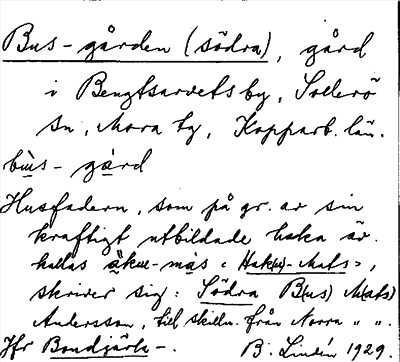 Bus-gården (södra), gård
i Bengtsarvets by, Sollerö
sn, Mora tg, Kopparb. län.
bùs-gård
Husfadern, som på gr. av sin
kraftigt utbildade haka är.
kallas -mas "Hak(e)-Mats",
skriver sig: Södra B(us) M(ats)
Andersson, till skilln. från Norra " ".
Jfr B. Lindén 1929.